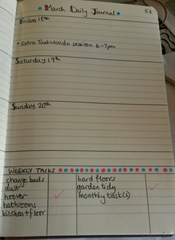 March Daily Journal
53
Friday 18th
• Extra Taekwondo session 6-7pm
Saturday 19th
Sunday 20th
WEEKLY TASKS
change beds
dust
hoover
bathrooms
kitchen floor
hard floors
garden tidy
monthly task(s)